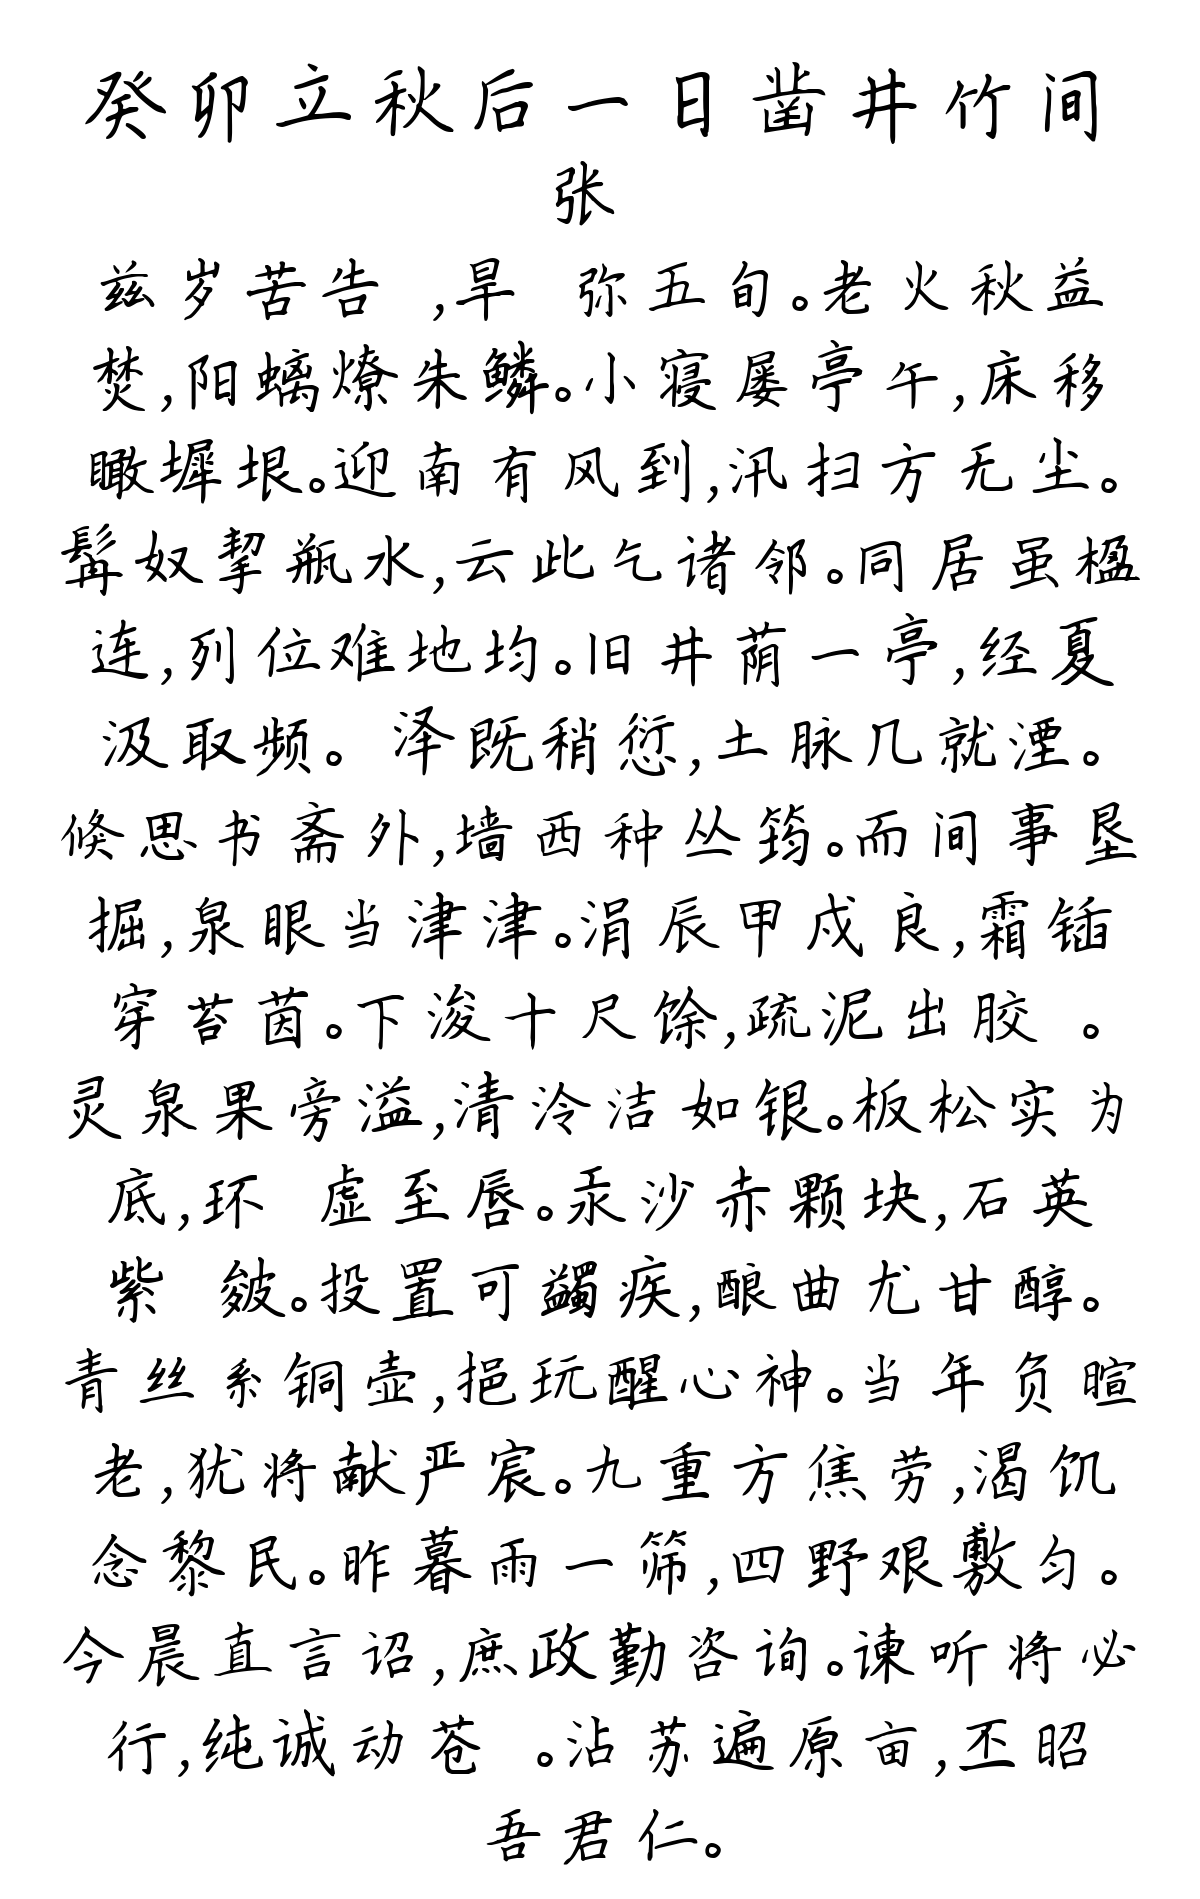 癸卯立秋后一日凿井竹间
张
兹岁苦告 ,旱 弥五旬。老火秋益
焚,阳螭燎朱鳞。小寝屡亭午,床移
瞰墀垠。迎南有风到,汛扫方无尘。
髯奴挈瓶水,云此乞诸邻。同居虽楹
连,列位难地均。旧井荫一亭,经夏
汲取频。 泽既稍愆,土脉几就湮。
倏思书斋外,墙西种丛筠。而间事垦
掘,泉眼当津津。涓辰甲戍良,霜锸
穿苔茵。下浚十尺馀,疏泥出胶 。
灵泉果旁溢,清泠洁如银。板松实为
底,环 虚至唇。汞沙赤颗块,石英
紫 皴。投置可蠲疾,酿曲尤甘醇。
青丝系铜壶,挹玩醒心神。当年负暄
老,犹将献严宸。九重方焦劳,渴饥
念黎民。昨暮雨一筛,四野艰敷匀。
今晨直言诏,庶政勤咨询。谏听将必
行,纯诚动苍 。沾苏遍原亩,丕昭
吾君仁。